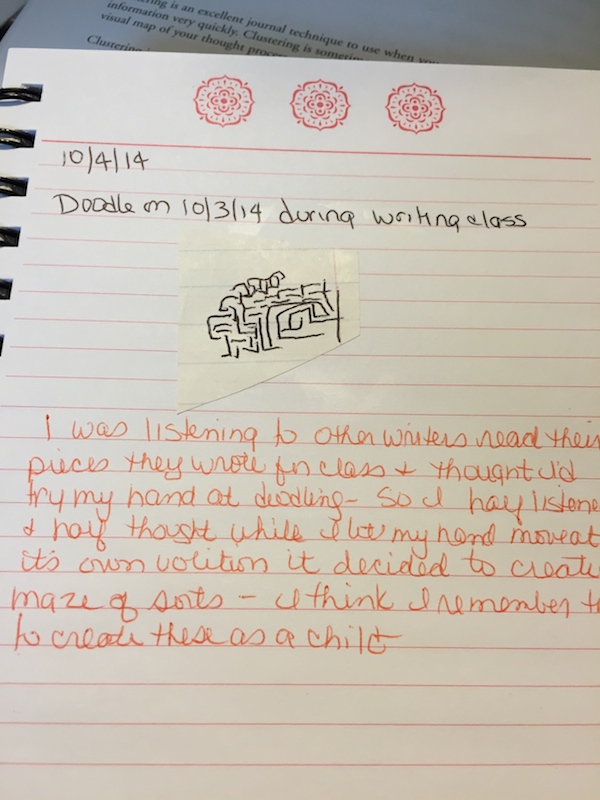 ering is an excellent journal technique to use when you
information very quickly. Clustering is sometim
visual map of your thought proce
Clustering
10/4/14
Doodle on 10/3/14 during writing class
I was listening to other writers read their
pieces they wrote for class & thought I'd
try my hand at doodling - So I half listene
& half thought while I let my hand move at
it's own volition it decided to create
maze of sorts - I think I remember t
to create these as a child